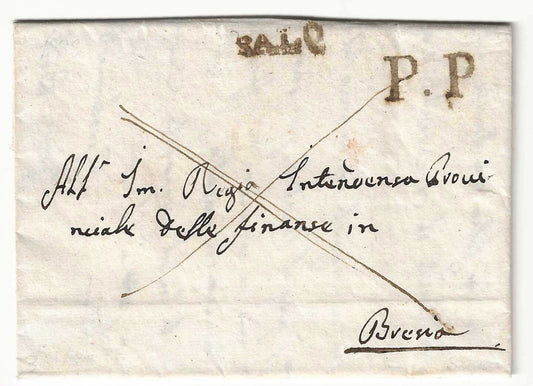 SALO
P. P
All' Im. Regia Intendensa Provi-
nciale delle finanse in
Bresia